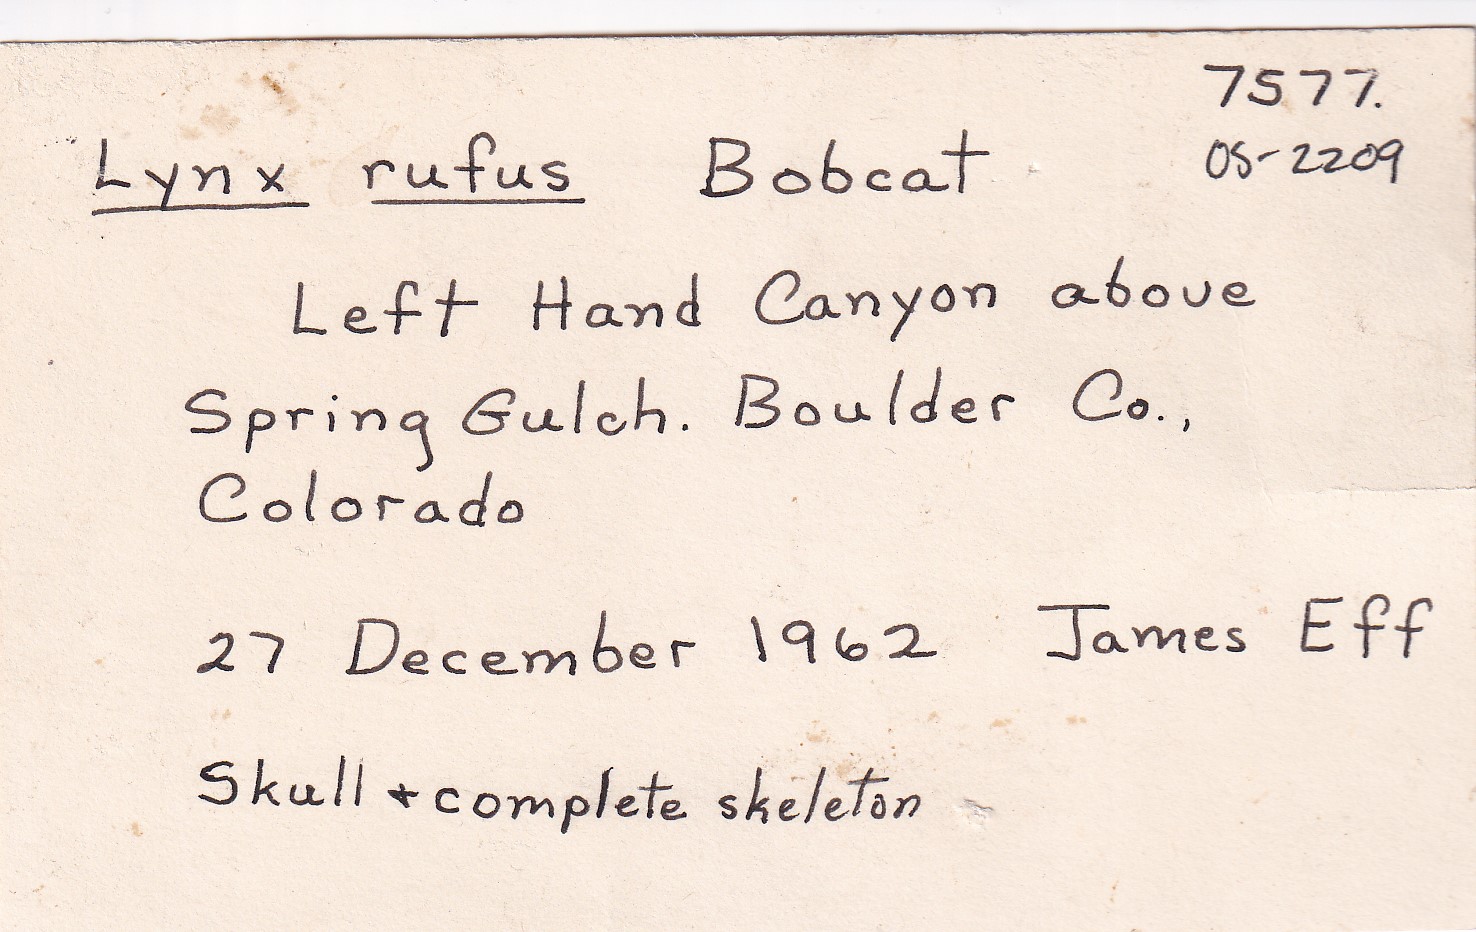 7577.
05-2209
Lynx rufus Bobcat
Left Hand Canyon above
Spring Gulch. Boulder Co.,
Colorado
27 December 1962 James Eff
Skull + complete skeleton